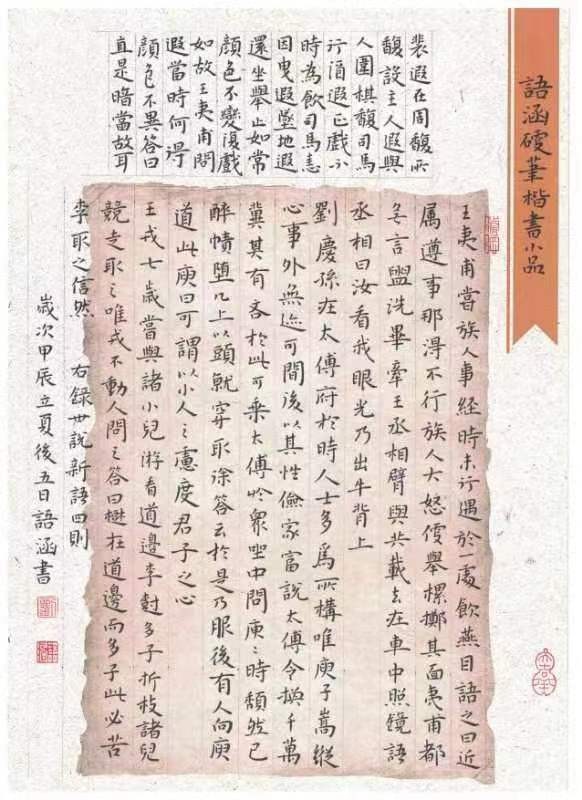 語涵硬筆楷書小品
裴遐在周馥所
馥設主人遐與
人圍棋馥司馬
行酒遐正戲不
時為飲司馬恚
因曳遐墜地遐
還坐舉止如常
顏色不變復戲
如故王夷甫問
遐當時何得
顏色不異答曰
直是暗當故耳
王夷甫當族人事経時未行遇於一處飲燕因語之曰近
属尊事那得不行族人大怒便舉樏擲其面夷甫都
無言盥洗畢牽王丞相臂與共載去在車中照鏡語
丞相曰汝看我眼光乃出牛背上
劉慶孫在太傅府於時人士多爲所構唯庾子嵩縱
心事外無迹可間後以其性儉家富說太傅令換千萬
冀其有吝於此可乘太傅於衆坐中問庾〻時頹然已
醉幘墮几上以頭就穿取徐答云於是乃服後有人向庾
道此庾曰可謂以小人之慮度君子之心
王戎七歲當與諸小兒游看道邊李樹多子折枝諸兒
競走取之唯戎不動人問之答曰樹在道邊而多子此必苦
李取之信然　右録世說新語四則
歲次甲辰立夏後五日語涵書